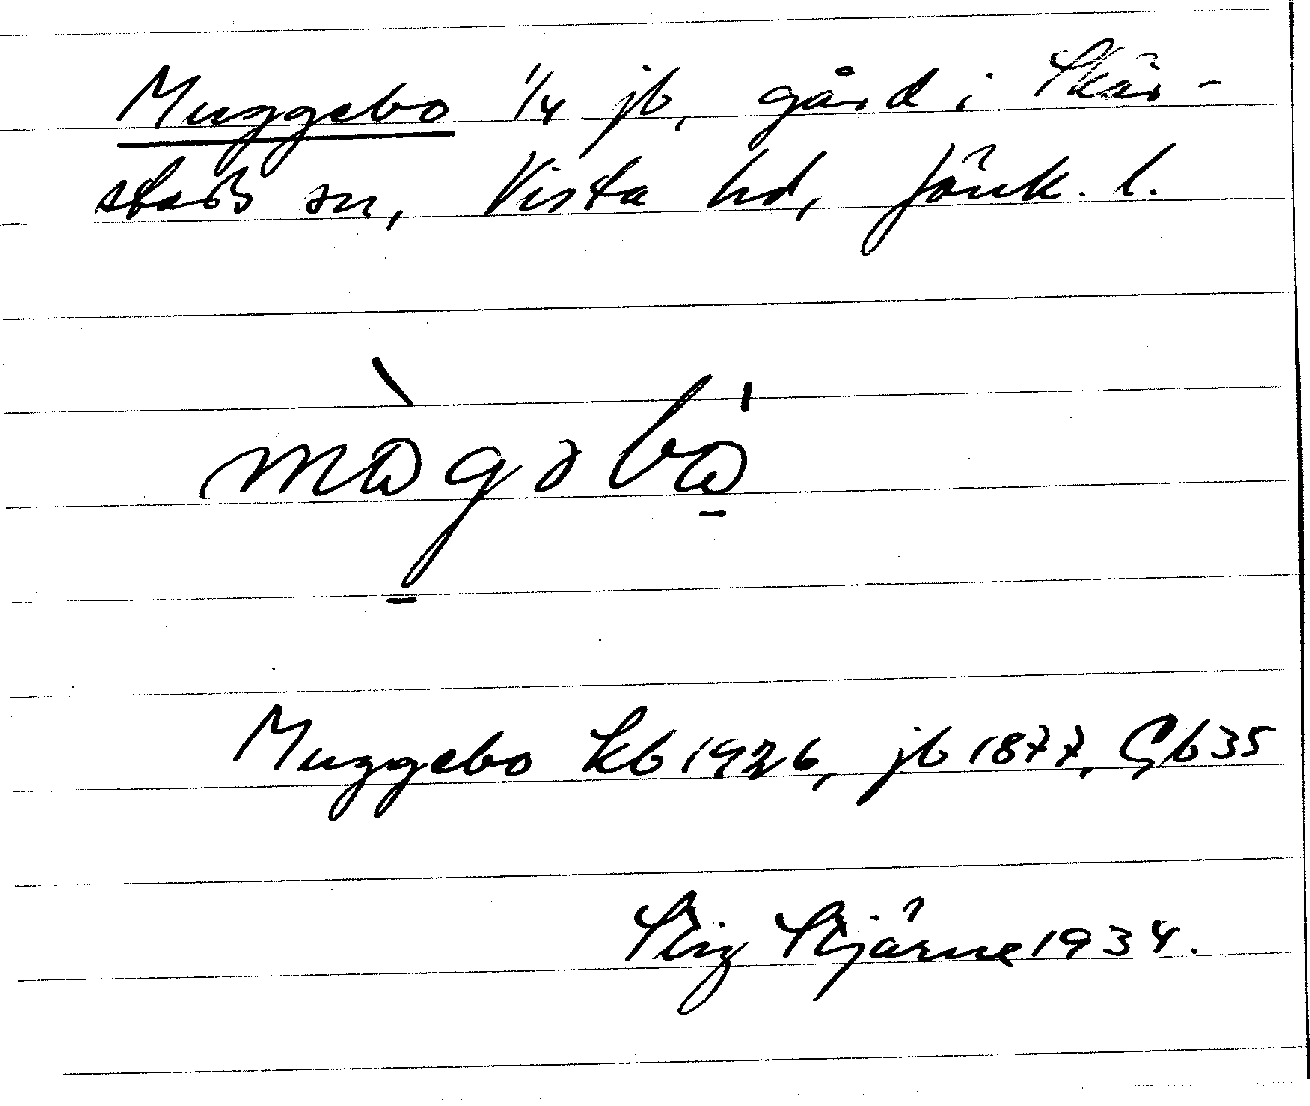 Muggebo 1/4 jb, gård i Skär-
stads sn, Vista hd, Jönk. l.
Muggebo kb 1926, jb 1877, Gb 35
Stig Stjärne 1934.